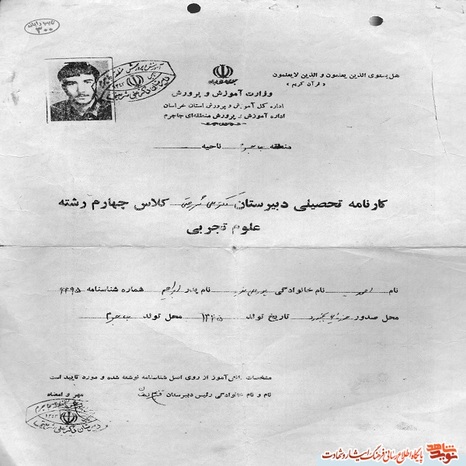 هل يستوى الذين يعلمون و الذين لا يعلمون
« قرآن کریم »
وزارت آموزش و پرورش
اداره کل آموزش و پرورش استان خراسان
اداره آموزش و پرورش منطقه‌ای جاجرم
منطقه جاجرم ناحیه
کارنامه تحصیلی دبیرستان دکتر علی شریعتی کلاس چهارم رشته
علوم تجربی
نام احمد نام خانوادگی نام پدر ابراهیم شماره شناسنامه
محل صدور تاریخ تولد ۱۳۴۵ محل تولد جاجرم
مشخصات دانش آموز از روی اصل شناسنامه نوشته شده و مورد تایید است
نام و نام خانوادگی رئیس دبیرستان مهر و امضاء
نوید شاهد پایگاه اطلاع رسانی فرهنگ ایثار و شهادت